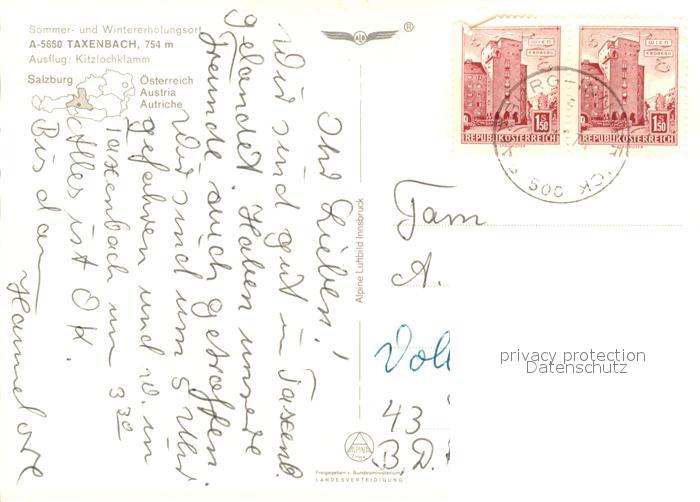 Sommer- und Wintererholungsort
A-5660 TAXENBACH, 754 m
Ausflug: Kitzlochklamm
Salzburg
Österreich
Austria
Autriche
Ihr Lieben!
Wir sind gut in Taxenb.
gelandet. Haben unsere
Freunde auch getroffen.
Wir sind um 5 Uhr
gefahren und w. in
Taxenbach um 3 30
Alles ist OK.
Bis dann
Hannelore
Alpine Luftbild Innsbruck
®
WIEN
ERDBERG
1S
1.50
REPUBLIK ÖSTERREICH
WIEN
ERDBERG
1S
1.50
REPUBLIK ÖSTERREICH
Fam
A.
43
B.D.
privacy protection
Datenschutz
ALPINE
Freigegeben v. Bundesministerium f.
LANDESVERTEIDIGUNG